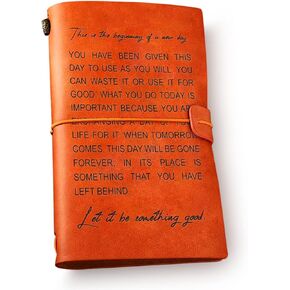 This is the beginning of a new day.
YOU HAVE BEEN GIVEN THIS
DAY TO USE AS YOU WILL. YOU
CAN WASTE IT OR USE IT FOR
GOOD. WHAT YOU DO TODAY IS
IMPORTANT BECAUSE YOU ARE
A DAY
LIFE FOR IT WHEN TOMORROW
COMES, THIS DAY WILL BE GONE
FOREVER, IN ITS PLACE IS
SOMETHING THAT YOU HAVE
LEFT BEHIND
Let it be something good.